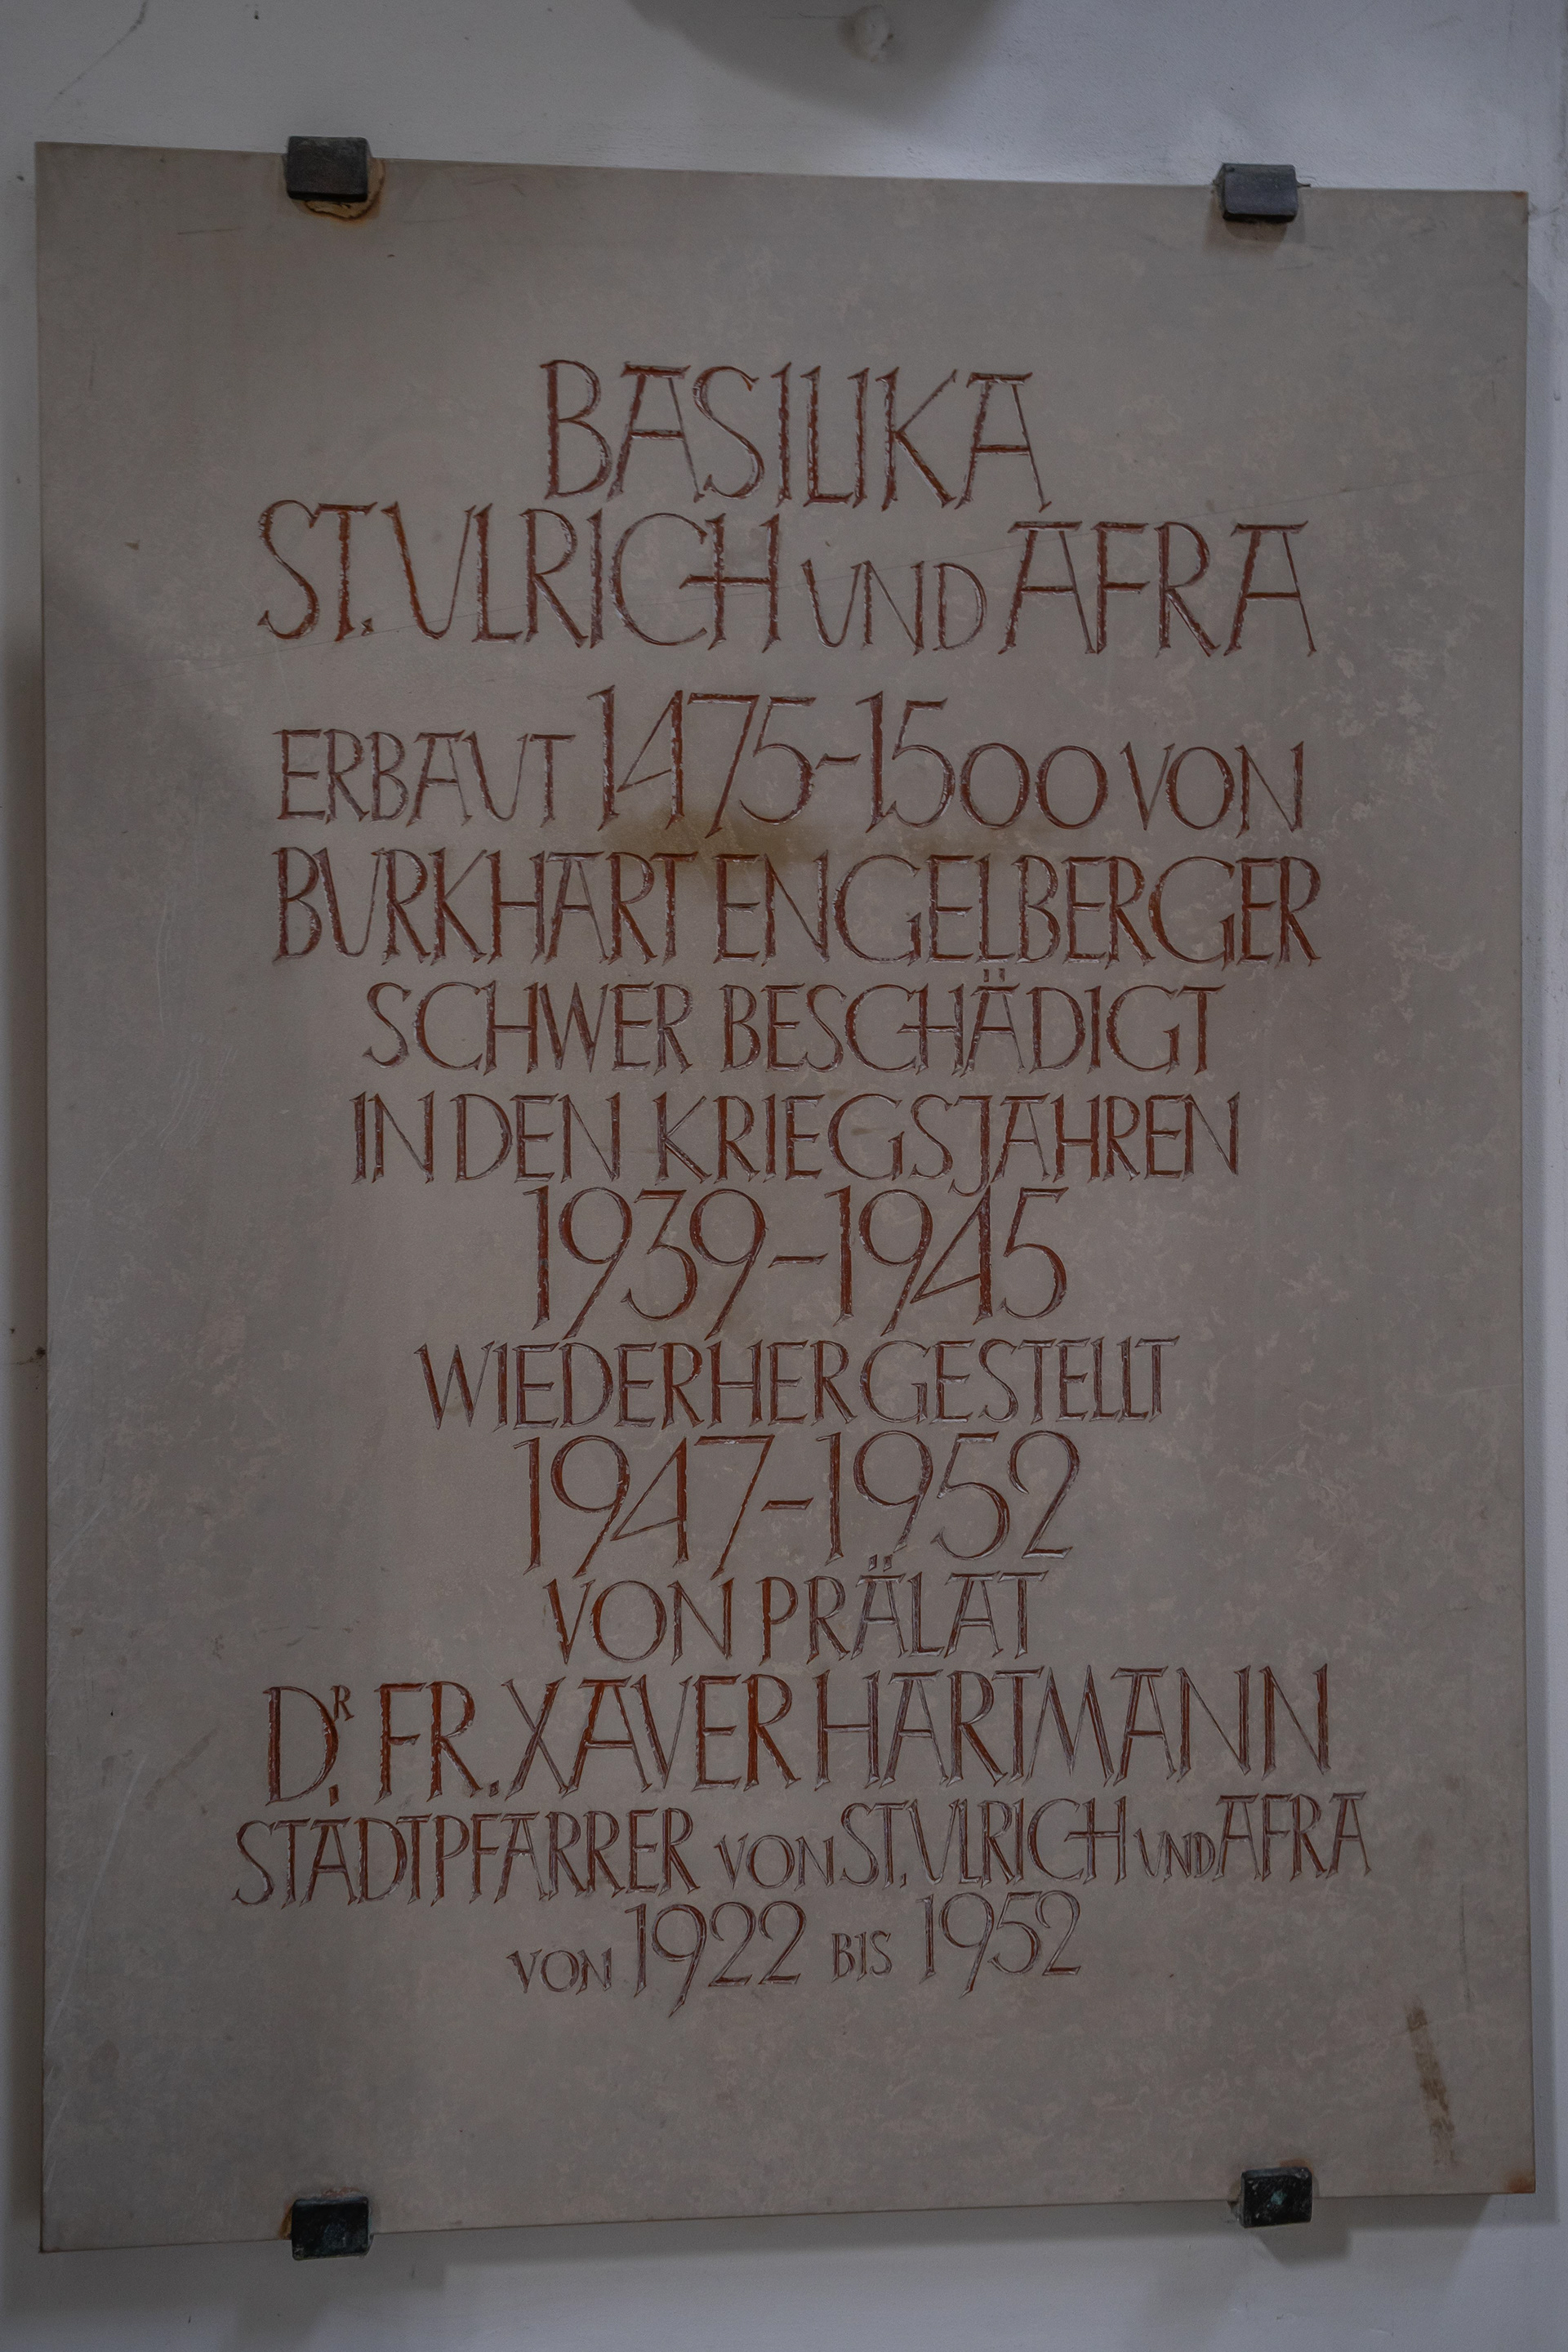 BASILIKA
ST. ULRICH UND AFRA
ERBAUT 1475-1500 VON
BURKHART ENGELBERGER
SCHWER BESCHÄDIGT
IN DEN KRIEGSJAHREN
1939-1945
WIEDERHERGESTELLT
1947-1952
VON PRÄLAT
DR. FR. XAVER HARTMANN
STADTPFARRER VON ST. ULRICH UND AFRA
VON 1922 BIS 1952